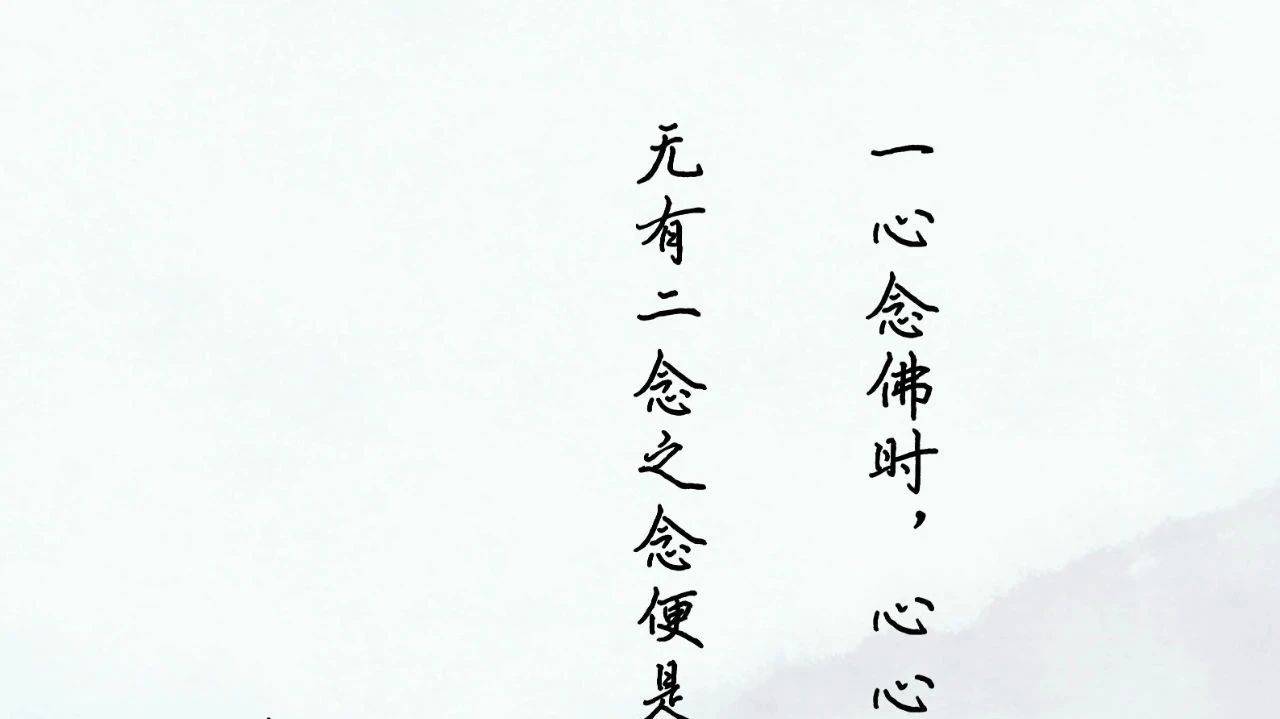 一心念佛时，心心
无有二念之念便是